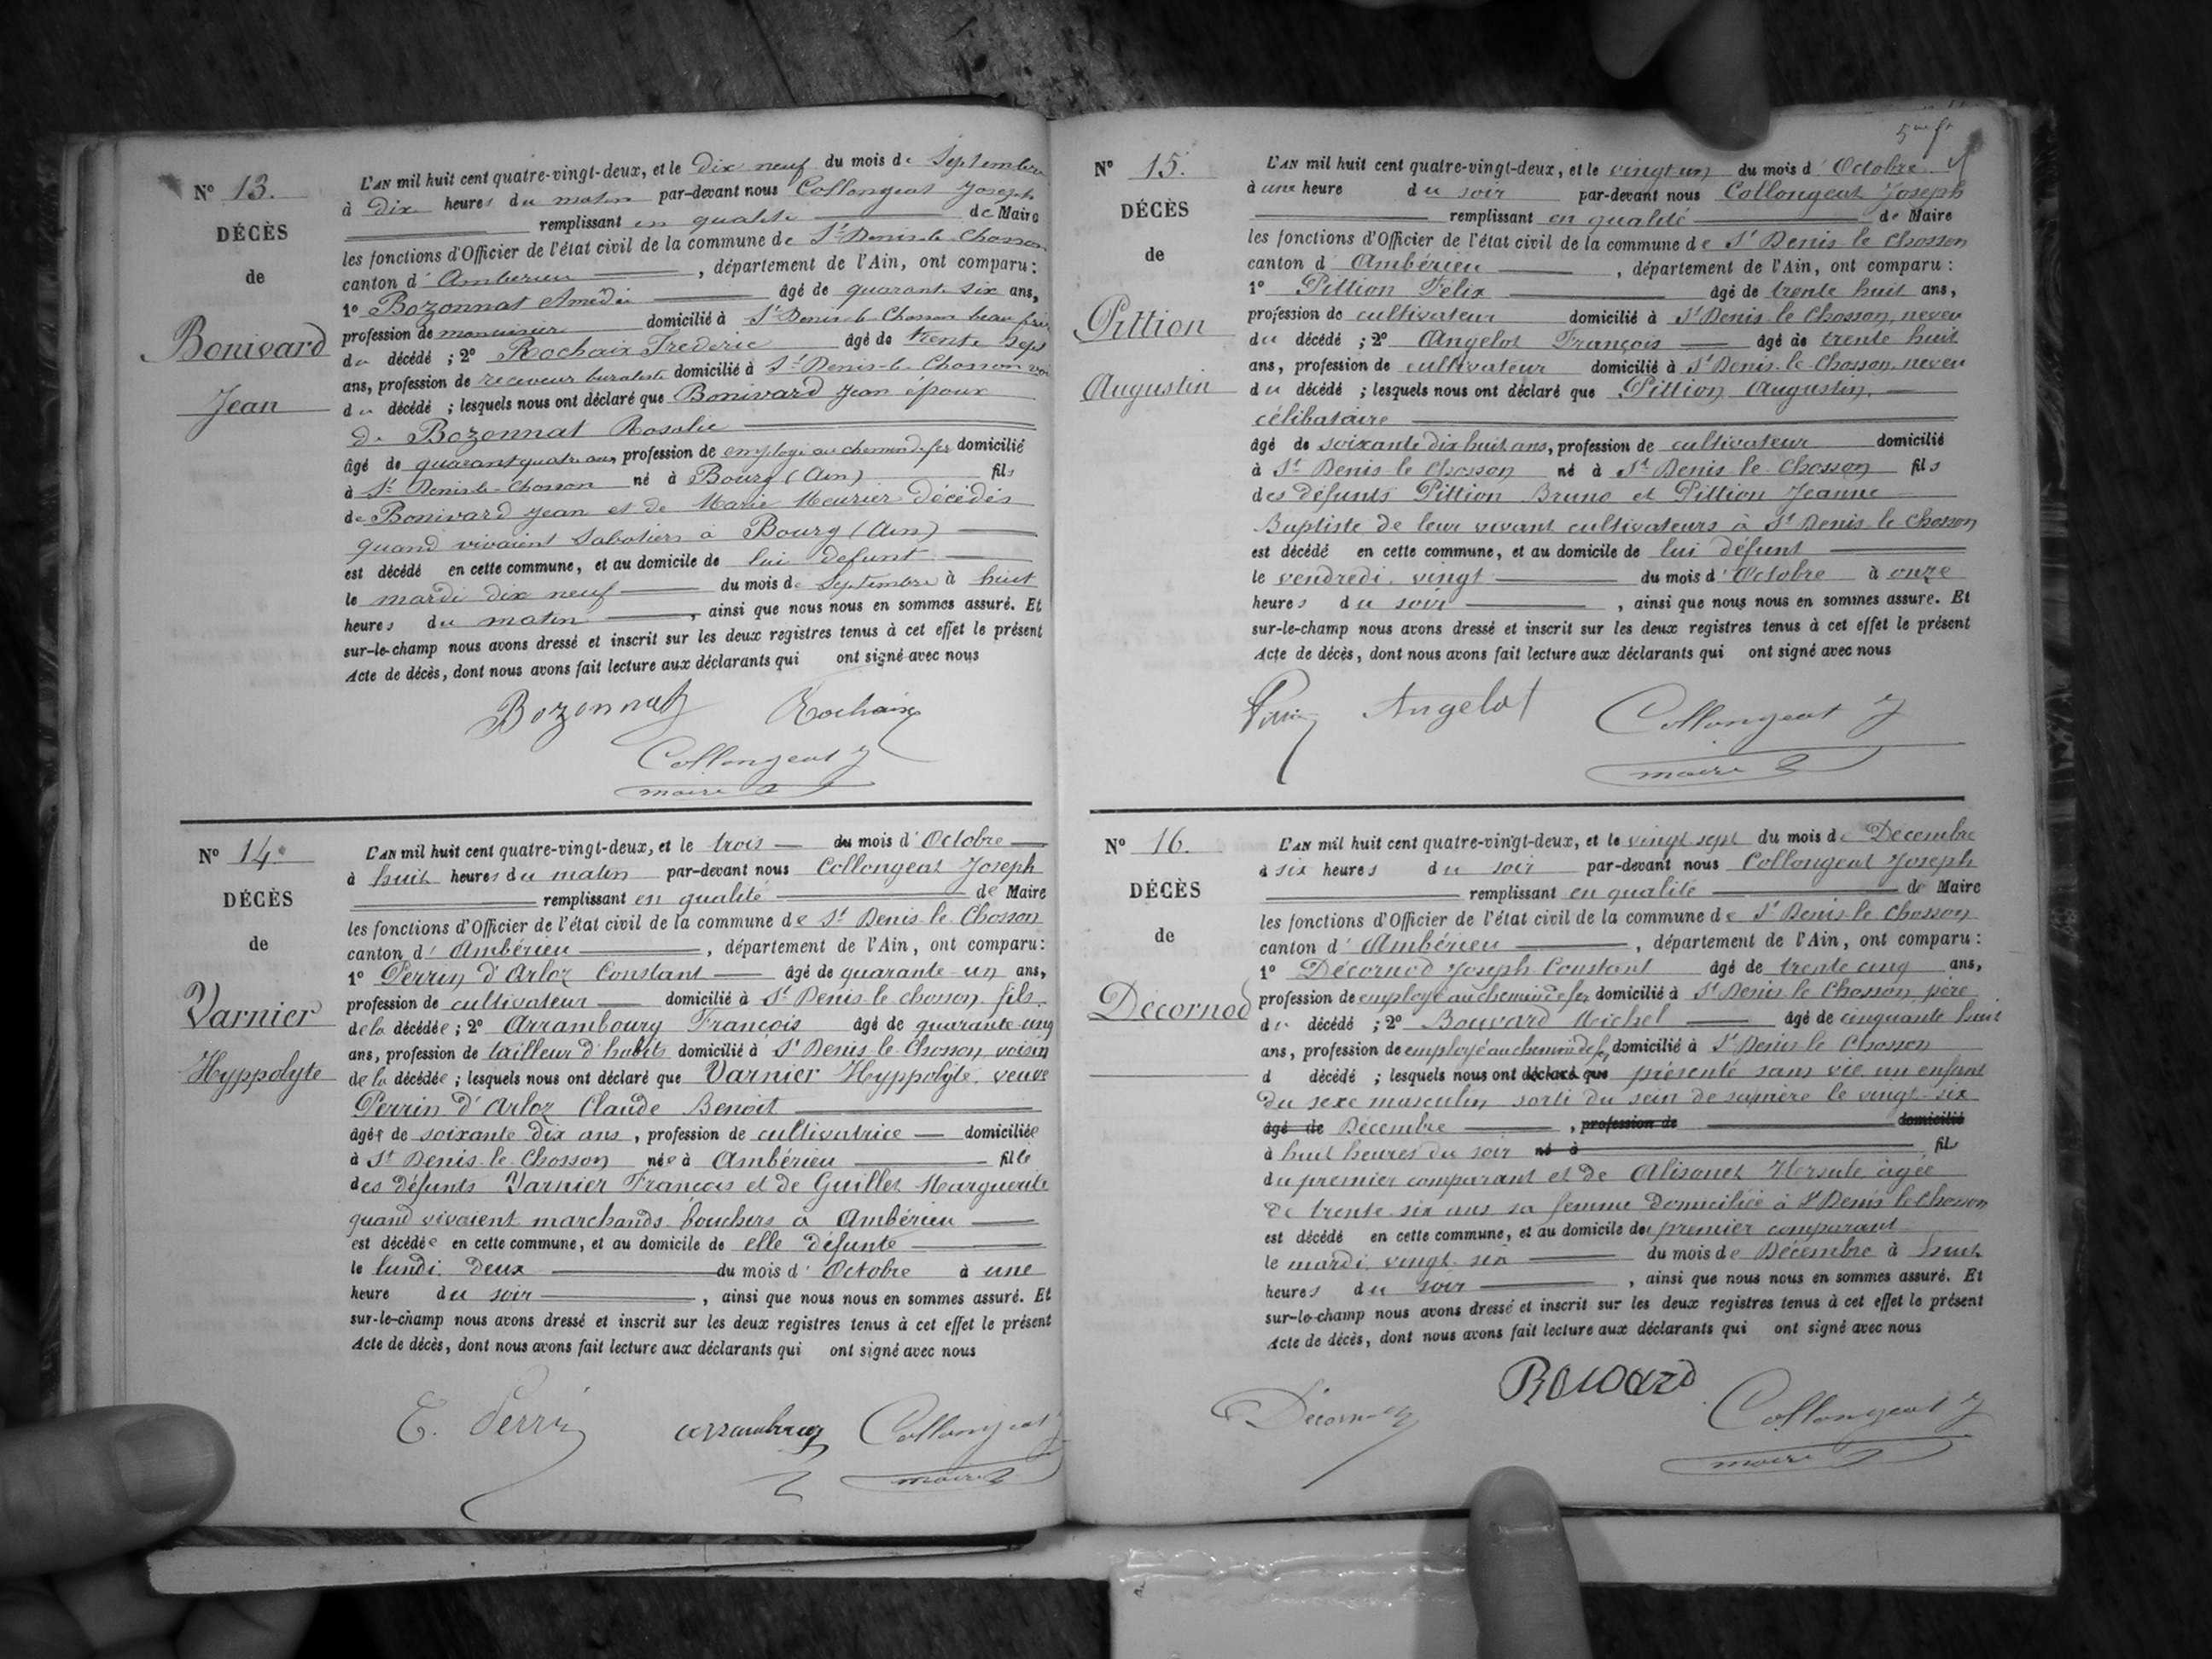 N° 13.
DÉCÈS
de
Bonivard
Jean
L'AN mil huit cent quatre-vingt-deux, et le dix neuf du mois de Septembre
à Dix heures du matin par-devant nous Collongeat Joseph
remplissant en qualité de Maire
les fonctions d'Officier de l'état civil de la commune de St Denis-le-Chosson
canton d'Amberieu, département de l'Ain, ont comparu :
1° Bozonnat Amédée âgé de quarante six ans,
profession de menuisier domicilié à St Denis-le-Chosson beau frère
du décédé ; 2° Rochaix Frederic âgé de trente sept
ans, profession de receveur buraliste domicilié à St Denis-le-Chosson
du décédé ; lesquels nous ont déclaré que Bonivard Jean époux
de Bozonnat Rosalie
âgé de quarante quatre ans, profession de employé au chemin de fer domicilié
à St Denis-le-Chosson né à Bourg (Ain) fils
de Bonivard Jean et de Marie Meurier décédés
quand vivaient Sabotiers à Bourg (Ain)
est décédé en cette commune, et au domicile de lui défunt
le mardi dix neuf du mois de Septembre à huit
heures du matin, ainsi que nous nous en sommes assuré. Et
sur-le-champ nous avons dressé et inscrit sur les deux registres tenus à cet effet le présent
Acte de décès, dont nous avons fait lecture aux déclarants qui ont signé avec nous
Bozonnat Rochaix
Collongeat J
maire
N° 14.
DÉCÈS
de
Varnier
Hyppolyte
L'AN mil huit cent quatre-vingt-deux, et le trois du mois d'Octobre
à huit heures du matin par-devant nous Collongeat Joseph
remplissant en qualité de Maire
les fonctions d'Officier de l'état civil de la commune de St Denis-le-Chosson
canton d'Ambérieu, département de l'Ain, ont comparu :
1° Perrin d'Arloz Constant âgé de quarante-un ans,
profession de cultivateur domicilié à St Denis-le-chosson fils
de la décédée ; 2° Arrambourg François âgé de quarante-cinq
ans, profession de tailleur d'habits domicilié à St Denis-le-Chosson voisin
de la décédée ; lesquels nous ont déclaré que Varnier Hyppolyte veuve
Perrin d'Arloz Claude Benoit
âgée de soixante dix ans, profession de cultivatrice domiciliée
à St Denis-le-Chosson née à Ambérieu fille
des défunts Varnier François et de Guillet Marguerite
quand vivaient marchands bouchers à Ambérieu
est décédée en cette commune, et au domicile de elle défunte
le lundi deux du mois d'Octobre à une
heure du soir, ainsi que nous nous en sommes assuré. Et
sur-le-champ nous avons dressé et inscrit sur les deux registres tenus à cet effet le présent
Acte de décès, dont nous avons fait lecture aux déclarants qui ont signé avec nous
Collongeat
maire
5me ft
N° 15.
DÉCÈS
de
Pittion
Augustin
L'AN mil huit cent quatre-vingt-deux, et le vingt un du mois d'Octobre
à une heure du soir par-devant nous Collongeat Joseph
remplissant en qualité de Maire
les fonctions d'Officier de l'état civil de la commune de St Denis-le-Chosson
canton d'Ambérieu, département de l'Ain, ont comparu :
1° Pittion Félix âgé de trente huit ans,
profession de cultivateur domicilié à St Denis-le-Chosson, neveu
du décédé ; 2° Angelot François âgé de trente huit
ans, profession de cultivateur domicilié à St Denis-le-Chosson, neveu
du décédé ; lesquels nous ont déclaré que Pittion Augustin,
célibataire
âgé de soixante dix huit ans, profession de cultivateur domicilié
à St Denis-le-Chosson né à St Denis-le-Chosson fils
des défunts Pittion Bruno et Pittion Jeanne
Baptiste de leur vivant cultivateurs à St Denis-le-Chosson
est décédé en cette commune, et au domicile de lui défunt
le vendredi vingt du mois d'Octobre à onze
heures du soir, ainsi que nous nous en sommes assuré. Et
sur-le-champ nous avons dressé et inscrit sur les deux registres tenus à cet effet le présent
Acte de décès, dont nous avons fait lecture aux déclarants qui ont signé avec nous
Angelot Collongeat J
maire
N° 16.
DÉCÈS
de
Décornod
L'AN mil huit cent quatre-vingt-deux, et le vingt sept du mois de Décembre
à six heures du soir par-devant nous Collongeat Joseph
remplissant en qualité de Maire
les fonctions d'Officier de l'état civil de la commune de St Denis-le-Chosson
canton d'Ambérieu, département de l'Ain, ont comparu :
1° Décornod Joseph Constant âgé de trente cinq ans,
profession de employé au chemin de fer domicilié à St Denis-le-Chosson père
du décédé ; 2° Bouvard Michel âgé de cinquante huit
ans, profession de employé au chemin de fer domicilié à St Denis-le-Chosson
d décédé ; lesquels nous ont déclaré que présenté sans vie un enfant
du sexe masculin sorti du sein de sa mère le vingt-six
âgé de Décembre, profession de domicilié
à huit heures du soir né à fils
du premier comparant et de Alisonet Ursule âgée
de trente-six ans sa femme domiciliée à St Denis-le-Chosson
est décédé en cette commune, et au domicile du premier comparant
le mardi vingt-six du mois de Décembre à huit
heures du soir, ainsi que nous nous en sommes assuré. Et
sur-le-champ nous avons dressé et inscrit sur les deux registres tenus à cet effet le présent
Acte de décès, dont nous avons fait lecture aux déclarants qui ont signé avec nous
Décornod Bouvard Collongeat J
maire